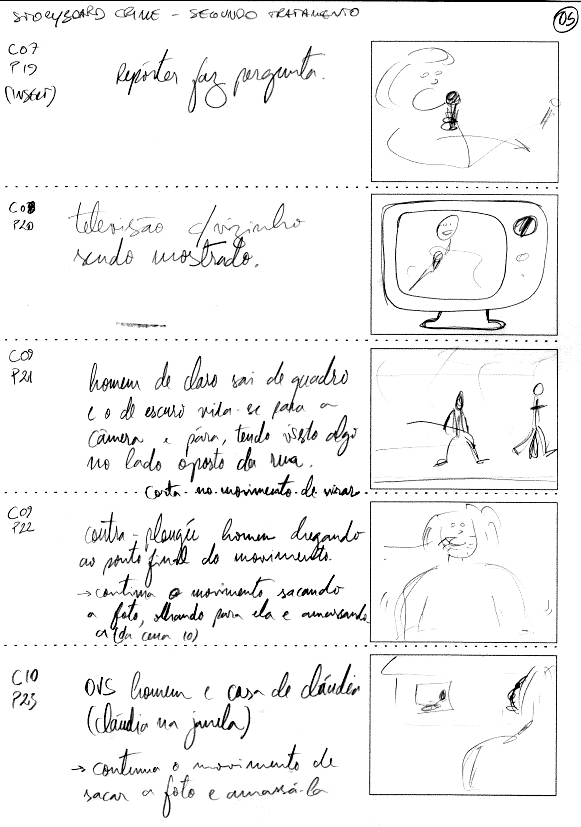 STORYBOARD CRIME - SEGUNDO TRATAMENTO
05
C07
P19
(INSERT)
Repórter faz pergunta.
C08
P20
televisão c/vizinho
sendo mostrado.
C09
P21
homem de claro sai de quadro
e o de escuro vira-se para a
câmera e pára, tendo visto algo
no lado oposto da rua.
corta no movimento de virar
C09
P22
contra-plongée homem chegando
ao ponto final do movimento.
→ continua o movimento, sacando
a foto, olhando para ela e amassando
a (da cena 10)
C10
P23
OVS homem e casa de cláudia
(cláudia na janela)
→ continua o movimento de
sacar a foto e amassá-la